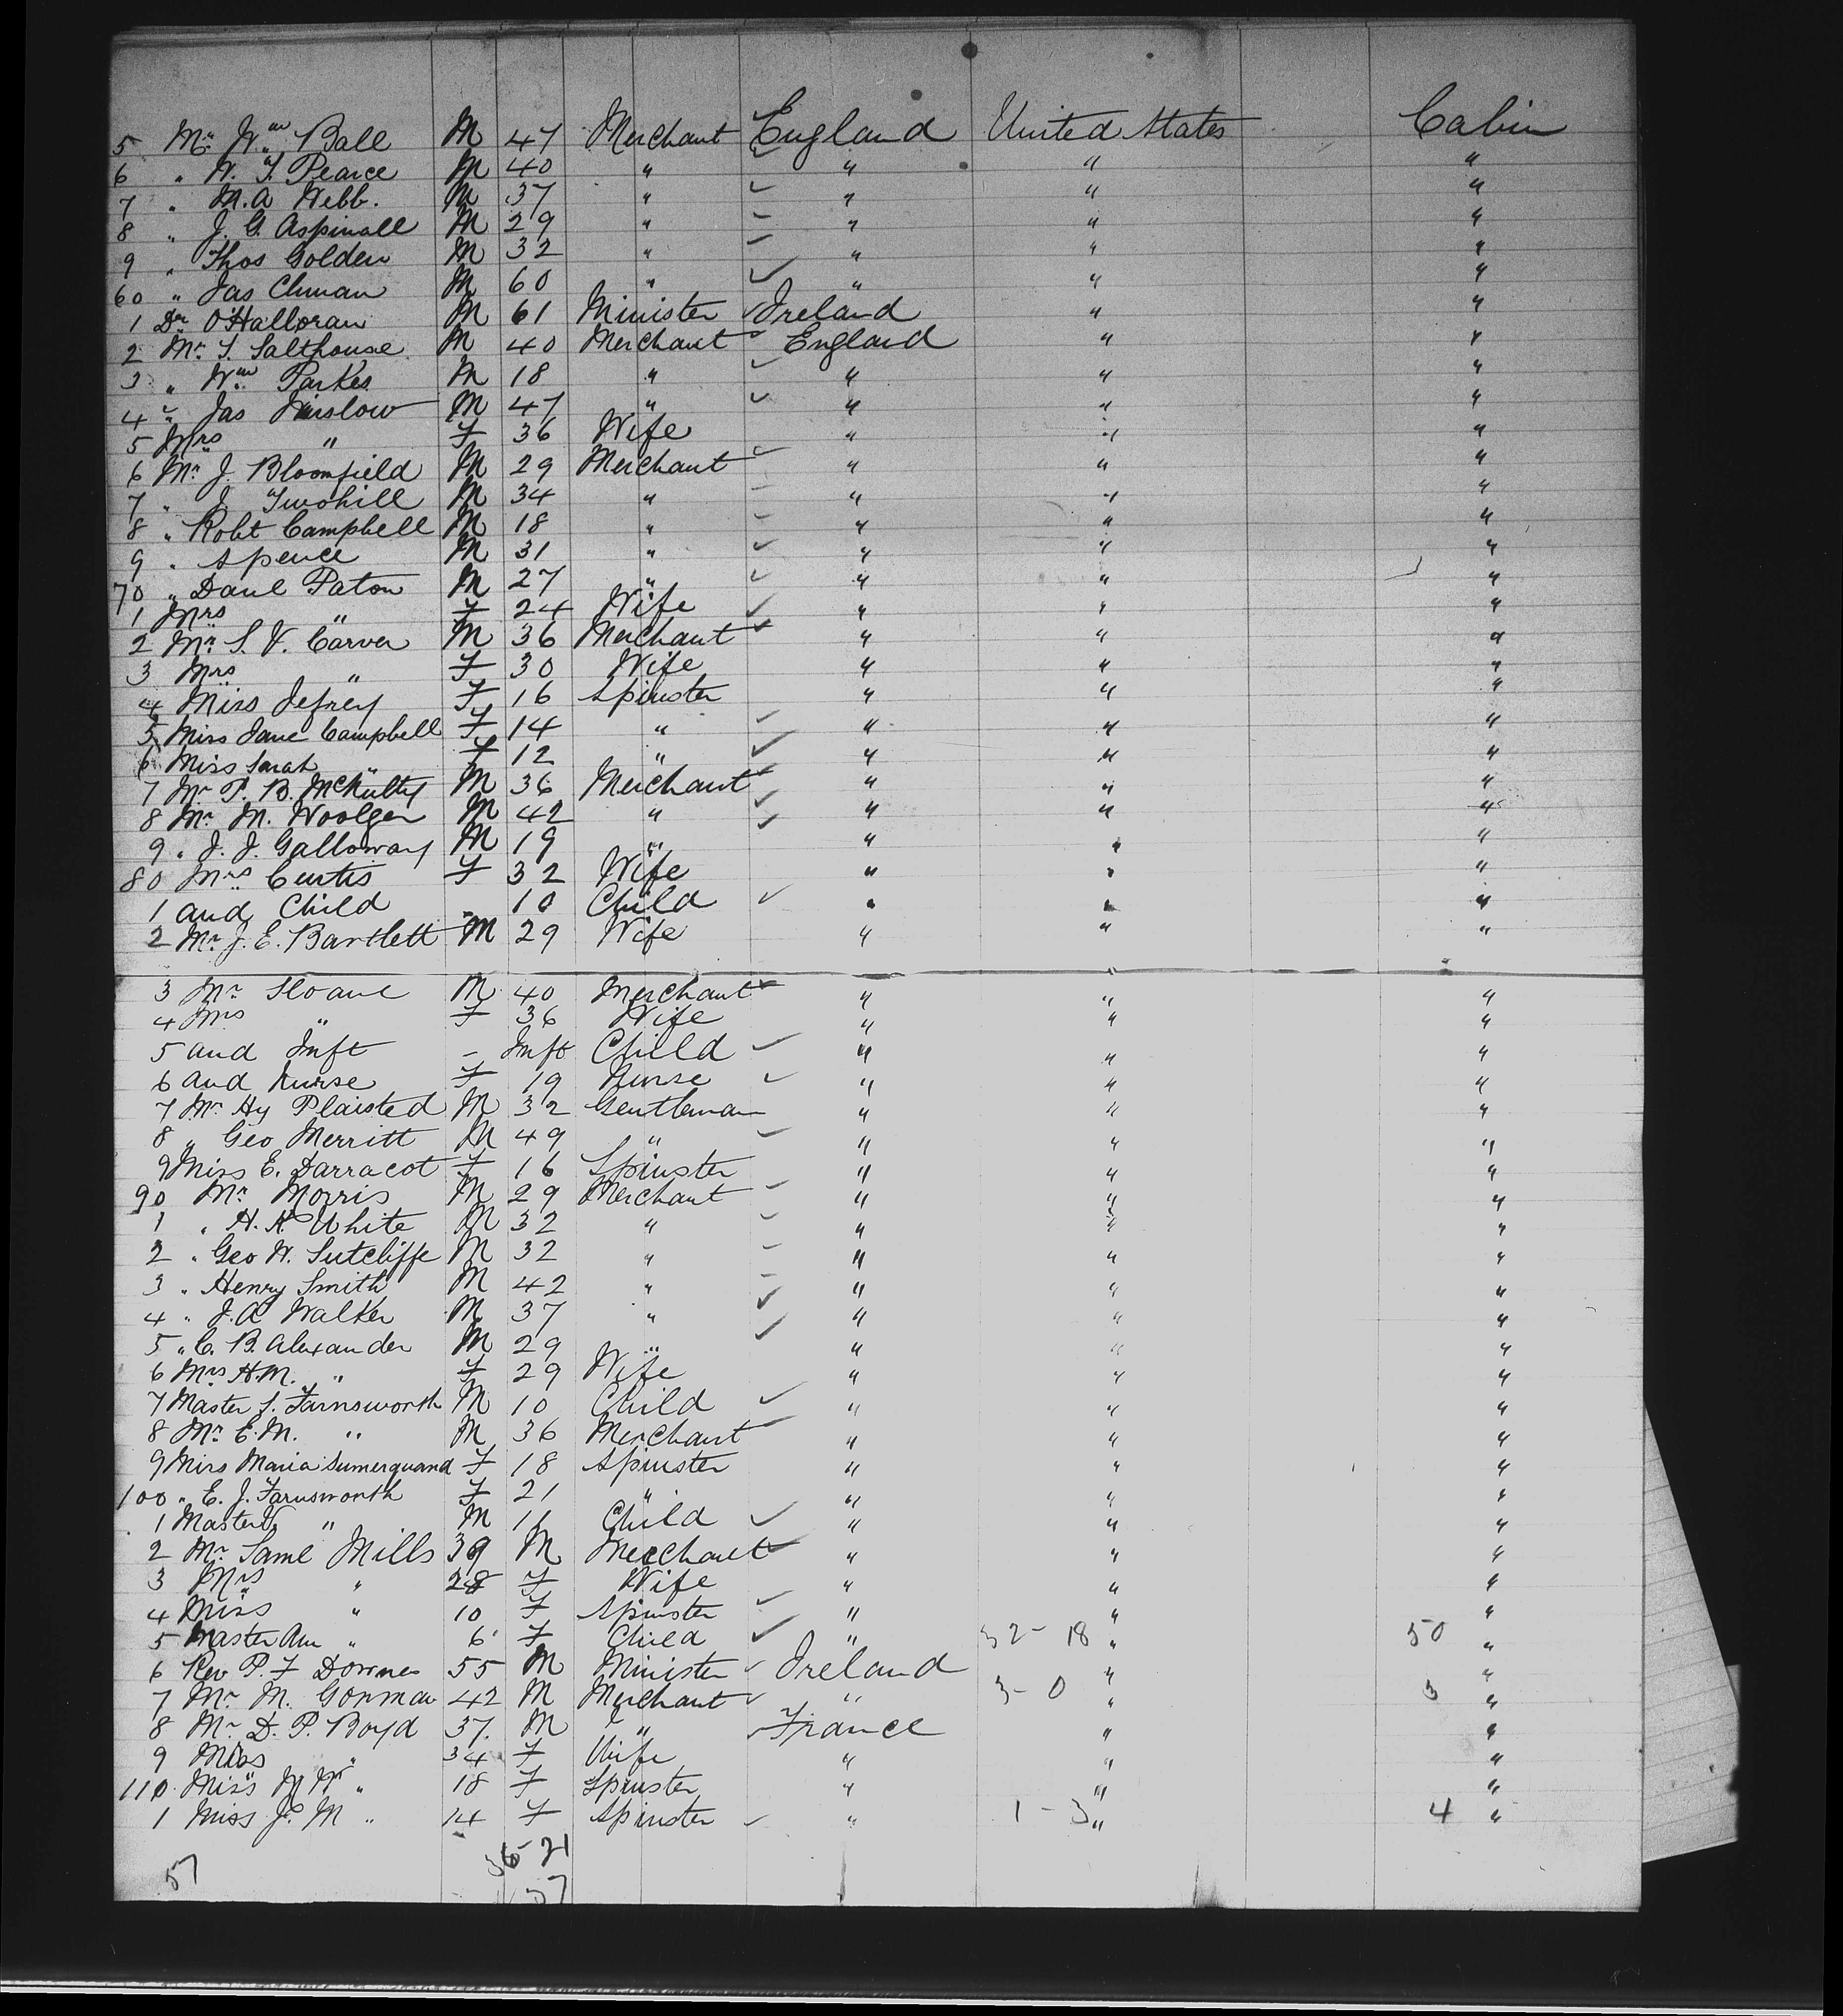 5 Mr. Wm. Ball M 47 Merchant England United States Cabin
6 " W. T. Pearce M 40 " " " "
7 " M. A Webb. M 37 " " " "
8 " J. G. Aspinall M 29 " " " "
9 " Thos Golden M 32 " " " "
60 " Jas M 60 " " " "
1 Dr O'Halloran M 61 Minister Ireland " "
2 Mr. S. Salthouse M 40 Merchant England " "
3 " Wm. Parkes M 18 " " " "
4 " Jas Winslow M 47 " " " "
5 Mrs " F 36 Wife " " "
6 Mr. J. Bloomfield M 29 Merchant " " "
7 " J. Twohill M 34 " " " "
8 " Robt Campbell M 18 " " " "
9 " Spence M 31 " " " "
70 " Danl Paton M 27 " " " "
1 Mrs " F 24 Wife " " "
2 Mr. S. V. Carver M 36 Merchant " " "
3 Mrs " F 30 Wife " " "
4 Miss Jefrey F 16 Spinster " " "
5 Miss Jane Campbell F 14 " " " "
6 Miss Sarah " F 12 " " " "
7 Mr P. B. McNulty M 36 Merchant " " "
8 Mr. M. Woolger M 42 " " " "
9 " J. J. Galloway M 19 " " " "
80 Mrs. Curtis F 32 Wife " " "
1 and Child - 10 Child " " "
2 Mr. J. E. Bartlett M 29 Wife " " "
3 Mr. Sloane M 40 Merchant " " "
4 Mrs " F 36 Wife " " "
5 and Inft - Inft Child " " "
6 and Nurse F 19 Nurse " " "
7 Mr. Hy Plaisted M 32 Gentleman " " "
8 " Geo Merritt M 49 " " " "
9 Miss E. Darracot F 16 Spinster " " "
90 Mr. Morris M 29 Merchant " " "
1 " H. K White M 32 " " " "
2 " Geo W. Sutcliffe M 32 " " " "
3 " Henry Smith M 42 " " " "
4 " J. A Walker M 37 " " " "
5 " C. B. Alexander M 29 " " " "
6 Mrs H. M. " F 29 Wife " " "
7 Master S. Farnsworth M 10 Child " " "
8 Mr. E. M. " M 36 Merchant " " "
9 Miss Maria Sumerquand F 18 Spinster " " "
100 " E. J. Farnsworth F 21 " " " "
1 Master " M 11 Child " " "
2 Mr. Saml Mills 39 M Merchant " " "
3 Mrs " 28 F Wife " " "
4 Miss " 10 F Spinster " " "
5 Master Am " 6 F Child " 32 - 18 " 50 "
6 Rev P. F Downes 55 M Minister Ireland " "
7 Mr. M. Gorman 42 M Merchant " 3 - 0 " 3 "
8 Mr. D. P. Boyd 37. M " France " "
9 Mrs " 34 F Wife " " "
110 Miss M " 18 F Spinster " " "
1 Miss J. M " 14 F Spinster " 1 - 3 " 4 "
36 - 21
57 57